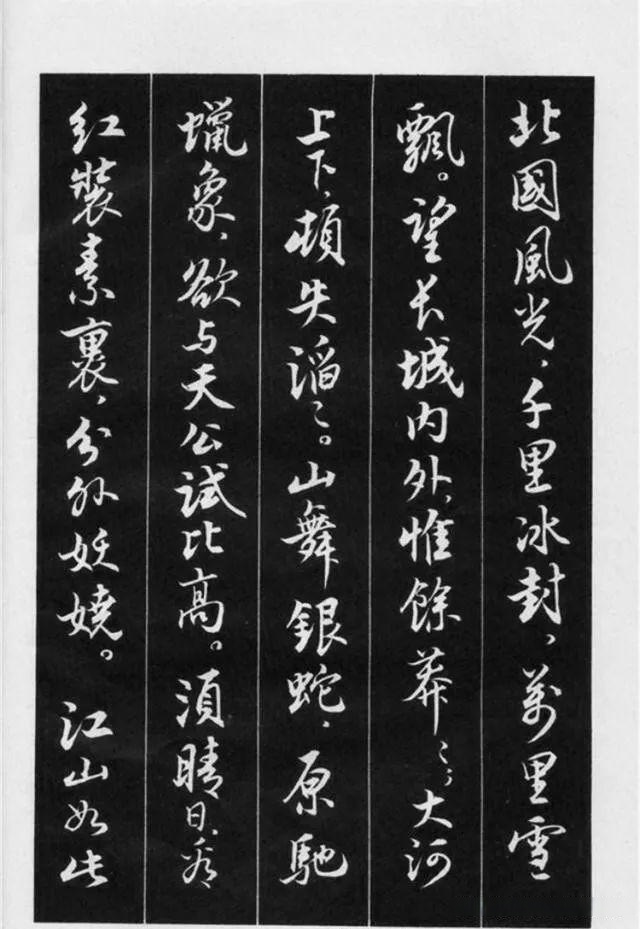 北國風光，千里冰封，萬里雪
飄。望长城内外，惟餘莽〻；大河
上下，頓失滔〻。山舞銀蛇，原馳
蠟象，欲与天公試比高。須晴日，看
红裝素裹，分外妖娆。江山如此